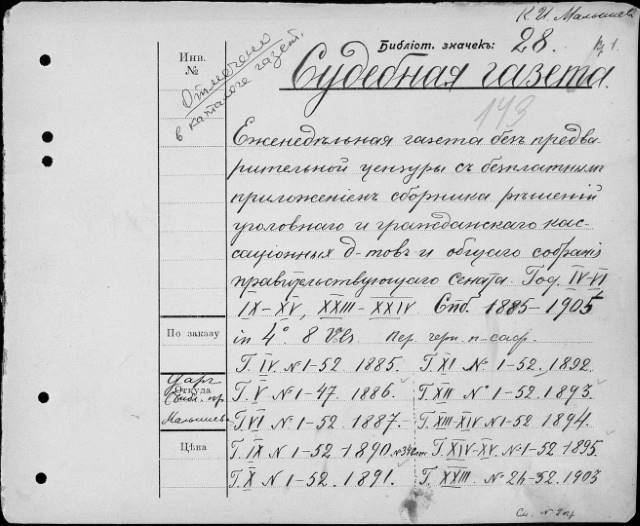 К. И. Малышев
Библіот. значекъ: 28. 1.
Инв.
№
Отмечено
в каталоге газет.
Судебная газета.
143
Еженедѣльная газета безъ предва
рительной цензуры съ безплатнымъ
приложеніемъ сборника рѣшеній
уголовнаго и гражданскаго кас-
саціонных д-товъ и общаго собранія
правительствующаго Сената. Год. IV-VI
IX-XV, XXIII-XXIV. Спб. 1885-1905
По заказу
in 4° 8 Vols Пер. черн. п-саф.
Г. IV. № 1-52. 1885.
Г. XI № 1-52. 1892
Откуда
Малышева
Г. V № 1-47. 1886.
Г. XII № 1-52. 1893.
Г. VI № 1-52. 1887.
Г. XIII-XIV № 1-52. 1894.
Цѣна
Г. IX № 1-52. 1890.
Г. XIV-XV. № 1-52. 1895.
Г. X № 1-52. 1891.
Г. XXIII. № 24-52. 1905
См. №